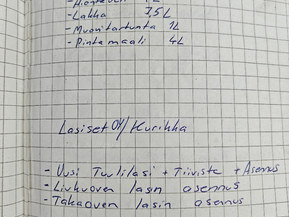 -Lakka 7,5L
-Muovitartunta 1L
-Pintamaali 4L
Lasiset OY/Kurikka
- Uusi Tuulilasi + Tiiviste + Asennus
- Liukuoven lasin asennus
- Takaoven lasin asennus